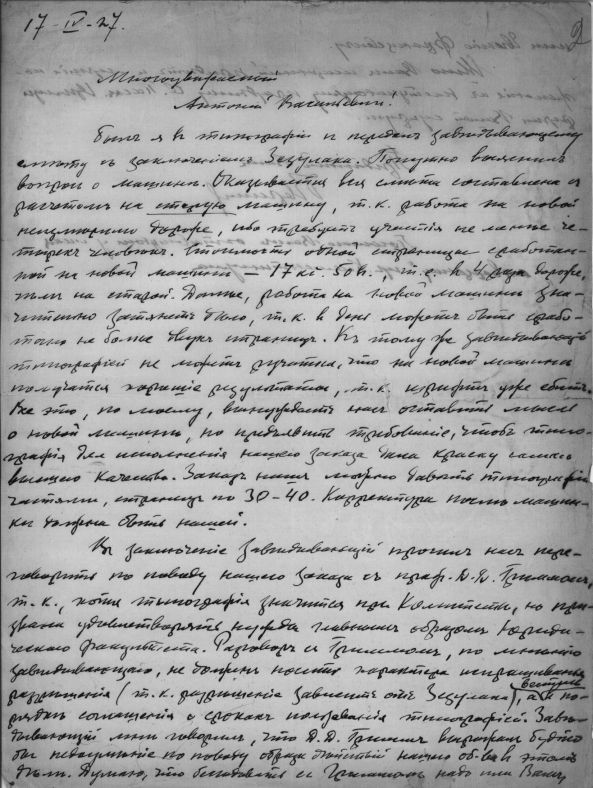 17-IV-27.
2
Многоуважаемый
Антоній Васильевич!
Былъ я въ типографіи и передалъ завѣдывающему
смѣту съ заключеніемъ Зезулака. Попутно выяснилъ
вопросъ о машинѣ. Оказывается вся смѣта составлена съ
расчетомъ на старую машину, т.к. работа на новой
неизмѣримо дороже, ибо требуетъ участія не менѣе че-
тырехъ человѣкъ. Стоимость одной страницы сработан-
ной на новой машинѣ — 17 кс. 50 h., т.е. въ 4 раза дороже,
чѣмъ на старой. Далѣе, работа на новой машинѣ зна-
чительно затянетъ дѣло, т.к. въ день можетъ быть срабо-
тано не болѣе двухъ страницъ. Къ тому же завѣдывающій
типографіей не можетъ ручаться, что на новой машинѣ
получатся хорошіе результаты, т.к. шрифтъ уже сбитъ.
Все это, по моему, вынуждаетъ насъ оставить мысль
о новой машинѣ, но предъявить требованіе, чтобъ типо-
графія для исполненія нашего заказа дала краску самаго
высшего качества. Заказъ нашъ можно давать типографіи
частями, страницъ по 30-40. Корректура послѣ машин-
ки должна быть нашей.
Въ заключеніе завѣдывающій просилъ насъ пере-
говорить по поводу нашего заказа съ проф. Д.Д. Гриммомъ,
т.к., хотя типографія значится при Комитетѣ, но при-
звана удовлетворять нужды главнымъ образомъ Юриди-
ческаго факультета. Разговоръ съ Гриммомъ, по мнѣнію
завѣдывающаго, не долженъ носить характера испрашиванія
разрѣшенія (т.к. разрѣшеніе зависитъ отъ Зезулака), а въ по-
рядкѣ соглашенія о срокахъ пользованія типографіей. Завѣ-
дывающій мнѣ говорилъ, что Д.Д. Гриммъ выражалъ будто
бы недоумѣніе по поводу образа дѣйствій нашего об-ва въ этомъ
дѣлѣ. Думаю, что бесѣдовать съ Гриммомъ надо или Вамъ,